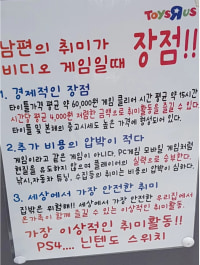 TOYSRUS
남편의 취미가
비디오 게임일때 장점!!
1. 경제적인 장점
타이틀가격 평균 약 60,000원 게임 클리어 시간 평균 약 15시간
시간당 평균 4,000원 저렴한 금액으로 취미활동을 즐길 수 있다.
타이틀 및 본체의 중고시세도 높은 가격에 형성되어 있다.
2. 추가 비용의 압박이 적다
게임이라고 같은 게임이 아니다. PC게임 모바일 게임처럼
현질을 유도하지 않으며 플레이어의 실력으로 승부한다.
낚시,자동차 튜닝, 수집등의 취미는 비용의 압박이 심하다.
3. 세상에서 가장 안전한 취미
집밖은 위험해!! 세상에서 가장 안전한 우리집에서
온가족이 함께 즐길 수 있는 이상적인 취미활동.
가장 이상적인 취미활동!!
PS4.... 닌텐도 스위치